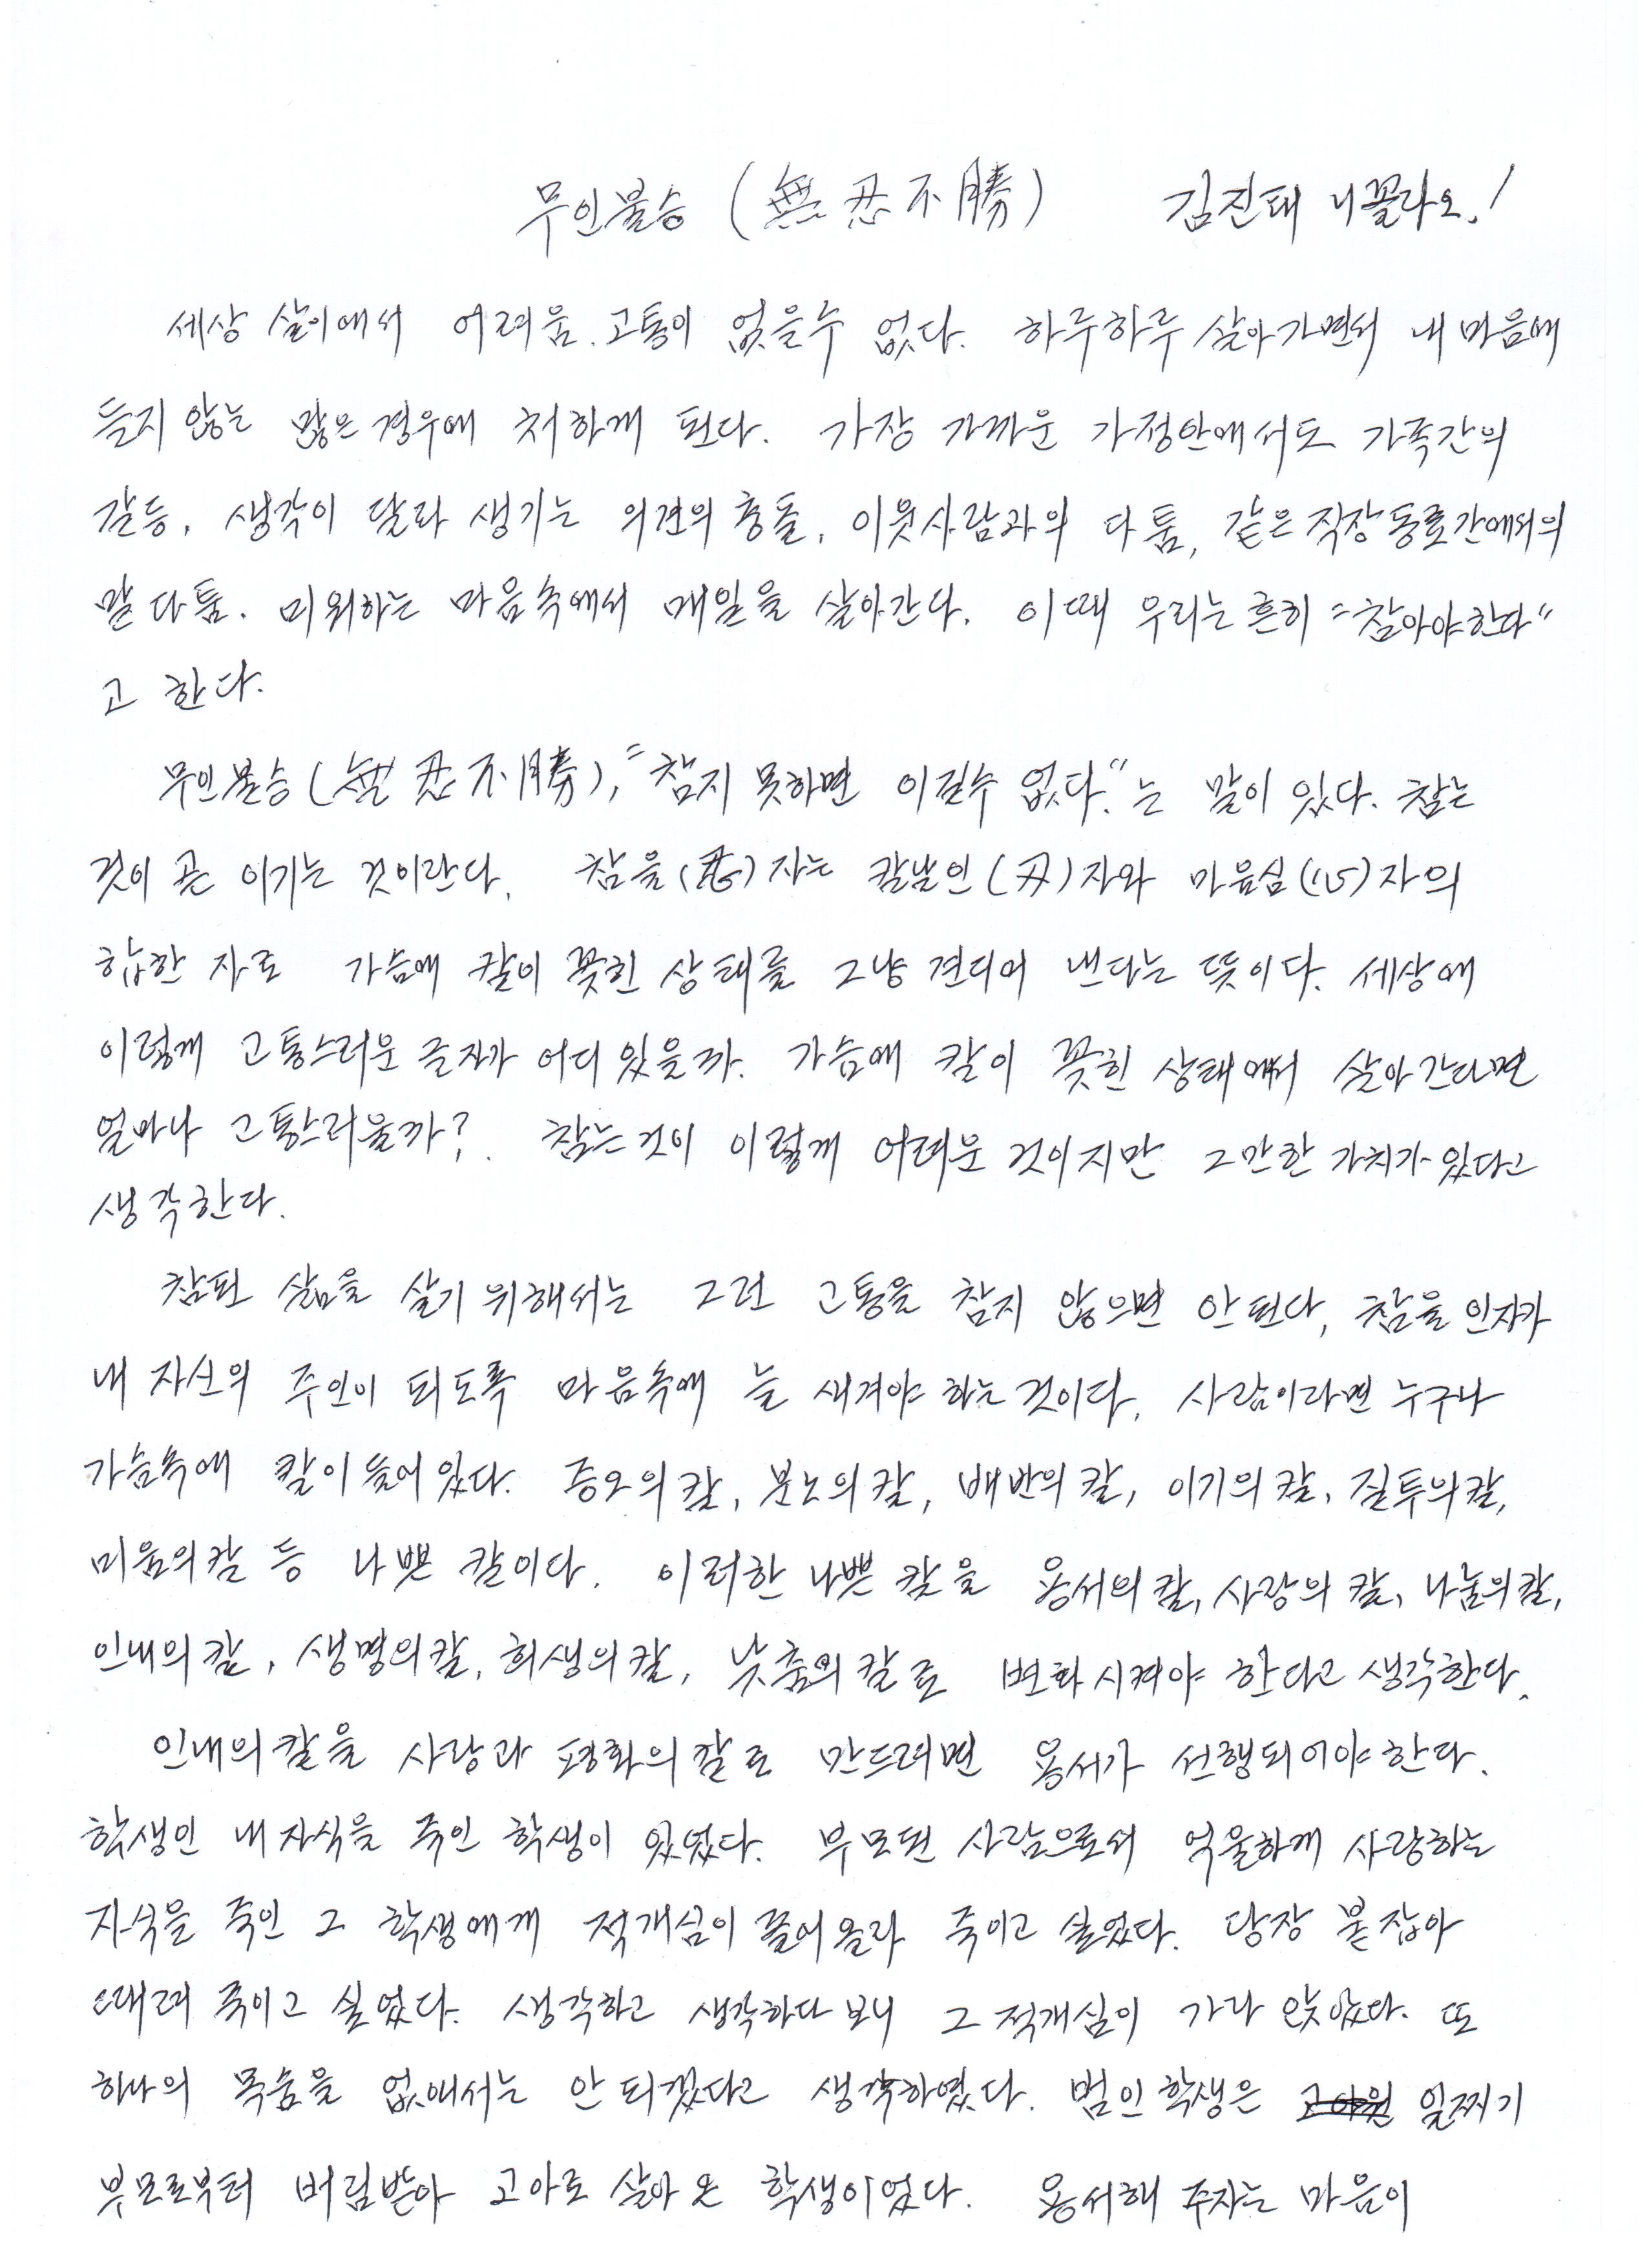 무인불승 (無忍不勝) 김진태 니꼴라오!
세상 살이에서 어려움. 고통이 없을수 없다. 하루하루 살아가면서 내 마음에
들지 않는 많은 경우에 처하게 된다. 가장 가까운 가정안에서도 가족간의
갈등, 생각이 달라 생기는 의견의 충돌, 이웃사람과의 다툼, 같은 직장 동료간에서의
말다툼. 미워하는 마음속에서 매일을 살아간다. 이때 우리는 흔히 "참아야한다"
고 한다.
무인불승(無忍不勝), "참지 못하면 이길수 없다."는 말이 있다. 참는
것이 곧 이기는 것이란다. 참을(忍)자는 칼날인(刃)자와 마음심(心)자의
합한 자로 가슴에 칼이 꽂힌 상태를 그냥 견디어 낸다는 뜻이다. 세상에
이렇게 고통스러운 글자가 어디 있을까. 가슴에 칼이 꽂힌 상태에서 살아간다면
얼마나 고통스러울까?. 참는것이 이렇게 어려운 것이지만 그만한 가치가 있다고
생각한다.
참된 삶을 살기 위해서는 그런 고통을 참지 않으면 안된다, 참을 인자가
내 자신의 주인이 되도록 마음속에 늘 새겨야 하는 것이다. 사람이라면 누구나
가슴속에 칼이 들어 있다. 증오의 칼, 분노의 칼, 배반의 칼, 이기의 칼, 질투의 칼,
미움의 칼 등 나쁜 칼이다. 이러한 나쁜 칼을 용서의 칼, 사랑의 칼, 나눔의 칼,
인내의 칼, 생명의 칼, 희생의 칼, 낮춤의 칼로 변화시켜야 한다고 생각한다.
인내의 칼을 사랑과 평화의 칼로 만드려면 용서가 선행되어야 한다.
학생인 내 자식을 죽인 학생이 있었다. 부모된 사람으로서 억울하게 사랑하는
자식을 죽인 그 학생에게 적개심이 끓어올라 죽이고 싶었다. 당장 붙잡아
때려 죽이고 싶었다. 생각하고 생각하다 보니 그 적개심이 가라 앉았다. 또
하나의 목숨을 없애서는 안되겠다고 생각하였다. 범인 학생은 일찌기
부모로부터 버림받아 고아로 살아온 학생이었다. 용서해 주자는 마음이